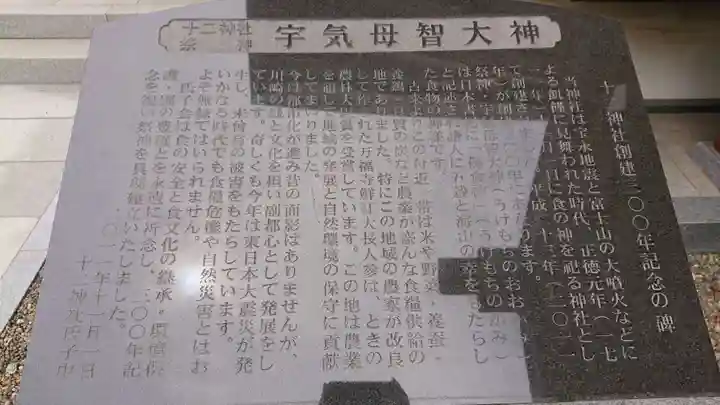 十二神社
祭神
宇気母智大神
十二神社創建三〇〇年記念の碑
当神社は宝永地震と富士山の大噴火などに
よる飢饉に見舞われた時代、正徳元年(一七
一一年)十一月一日に食の神を祀る神社とし
て創建
年)が創
祭神・宇気母智大神(うけもちのおおかみ)
は日本書
と記述さ
た食物の神様です。
古来よりこの付近一帯は米や野菜・養蚕・
養鶏
地でありました。特にこの地域の農家が改良
して作られた万福寺鮮紅大長人参は、ときの
農林大臣賞を受賞しています。この地は農業
を通して地域の発展と自然環境の保守に貢献
してまいりました。
今は都市化が進み昔の面影はありませんが、
川崎の緑と文化を担い副都心として発展をし
ています。奇しくも今年は東日本大震災が発
生し、未曾有の被害をもたらしています。
いかなる時代でも食糧危機や自然災害とはお
よそ無縁ではいられません。
氏子会は食の安全と食文化の継承・環境保
護・国の豊穣とを永遠に祈念し、三〇〇年記
念を祝い祭神を具現建立いたしました。
二〇一一年十一月一日
十二神社氏子中